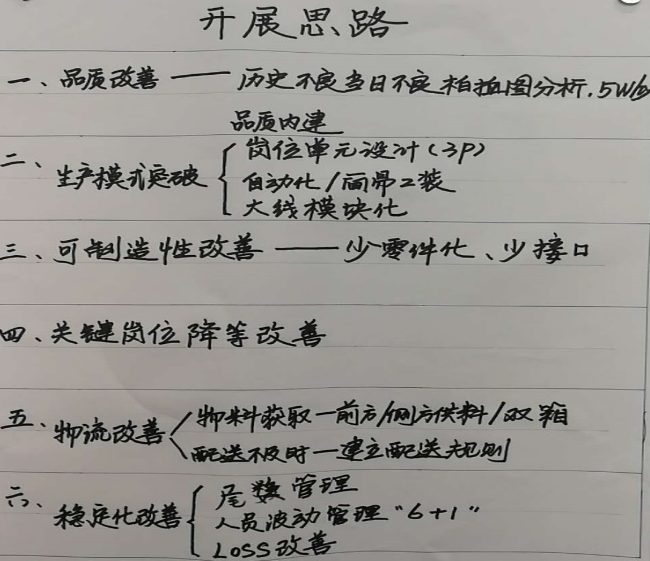 开展思路
一、品质改善 —— 历史不良当日不良柏拉图分析.5W/
品质内建
二、生产模式突破
岗位单元设计(3P)
自动化/简易工装
大线模块化
三、可制造性改善 —— 少零件化、少接口
四、关键岗位降等改善
五、物流改善
物料获取一前方/侧方供料/双箱
配送不及时一建立配送规则
六、稳定化改善
尾数管理
人员波动管理“6+1”
LOSS改善